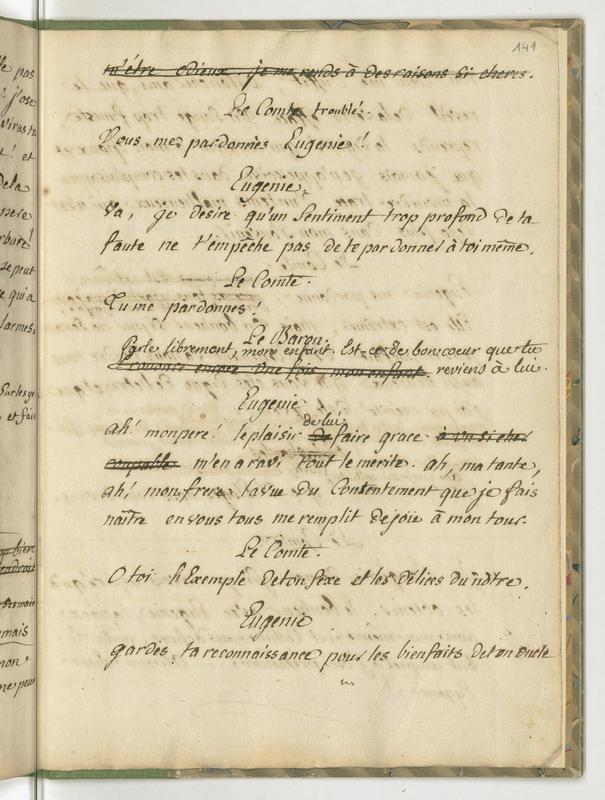 141
m'être odieux. je me rends à des raisons si cheres.
Le Comte troublé.
Vous me pardonnés Eugenie!
Eugenie.
Va, je desire qu'un Sentiment trop profond de ta
faute ne t'empêche pas de te pardonner à toi même.
Le Comte.
Tu me pardonnes!
Le Baron.
Parle librement, mon enfant. Est-ce de bon coeur que tu
encore une fois mon enfant. reviens à lui.
Eugenie
de lui
ah! mon pere! le plaisir de faire grace à un si cher
coupable m'en a ravi tout le merite. ah, ma tante,
ah! mon frere, la vue du Contentement que je fais
naître en vous tous me remplit de joie à mon tour.
Le Comte.
O toi l'Exemple de ton sexe et les délices du nôtre.
Eugenie
gardes ta reconnaissance pour les bienfaits de ton oncle
lle pas
j'ose
vivas tu
! et
de la
pere
rbare!
ze peut
e qui a
larmes.
Sur les ye
et fais
bien
Germain
mais
mon
ne peux